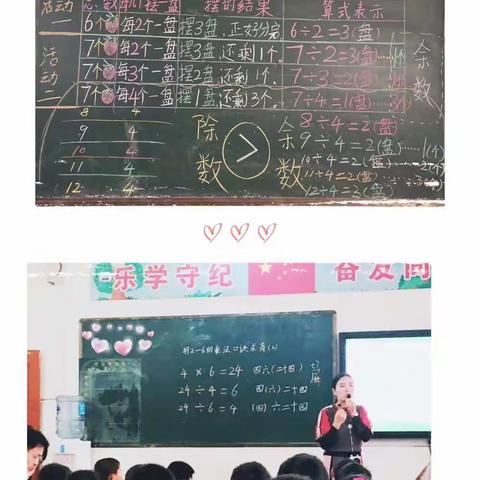 活动一
总数 每几个摆一盘 摆的结果 算式表示
6个 每2个一盘 摆3盘,正好分完 6÷2=3(盘)
活动二
7个 每2个一盘 摆3盘,还剩1个。 7÷2=3(盘)……1个
7个 每3个一盘 摆2盘 还剩1个, 7÷3=2(盘)……1个
7个 每4个一盘 摆1盘 还剩3个, 7÷4=1(盘)……3个
余数
8 4
9 4
10 4
11 4
12 4
除数 > 余数
8÷4=2(盘)
9÷4=2(盘)……1(个)
10÷4=2(盘)……2(个)
11÷4=2(盘)……3(个)
12÷4=3(盘)
乐学守纪
奋发向
用2~6的乘法口诀求商(2)
4×6=24 四六(二十四)
24÷4=6 四(六)二十四
24÷6=4 (四)六二十四